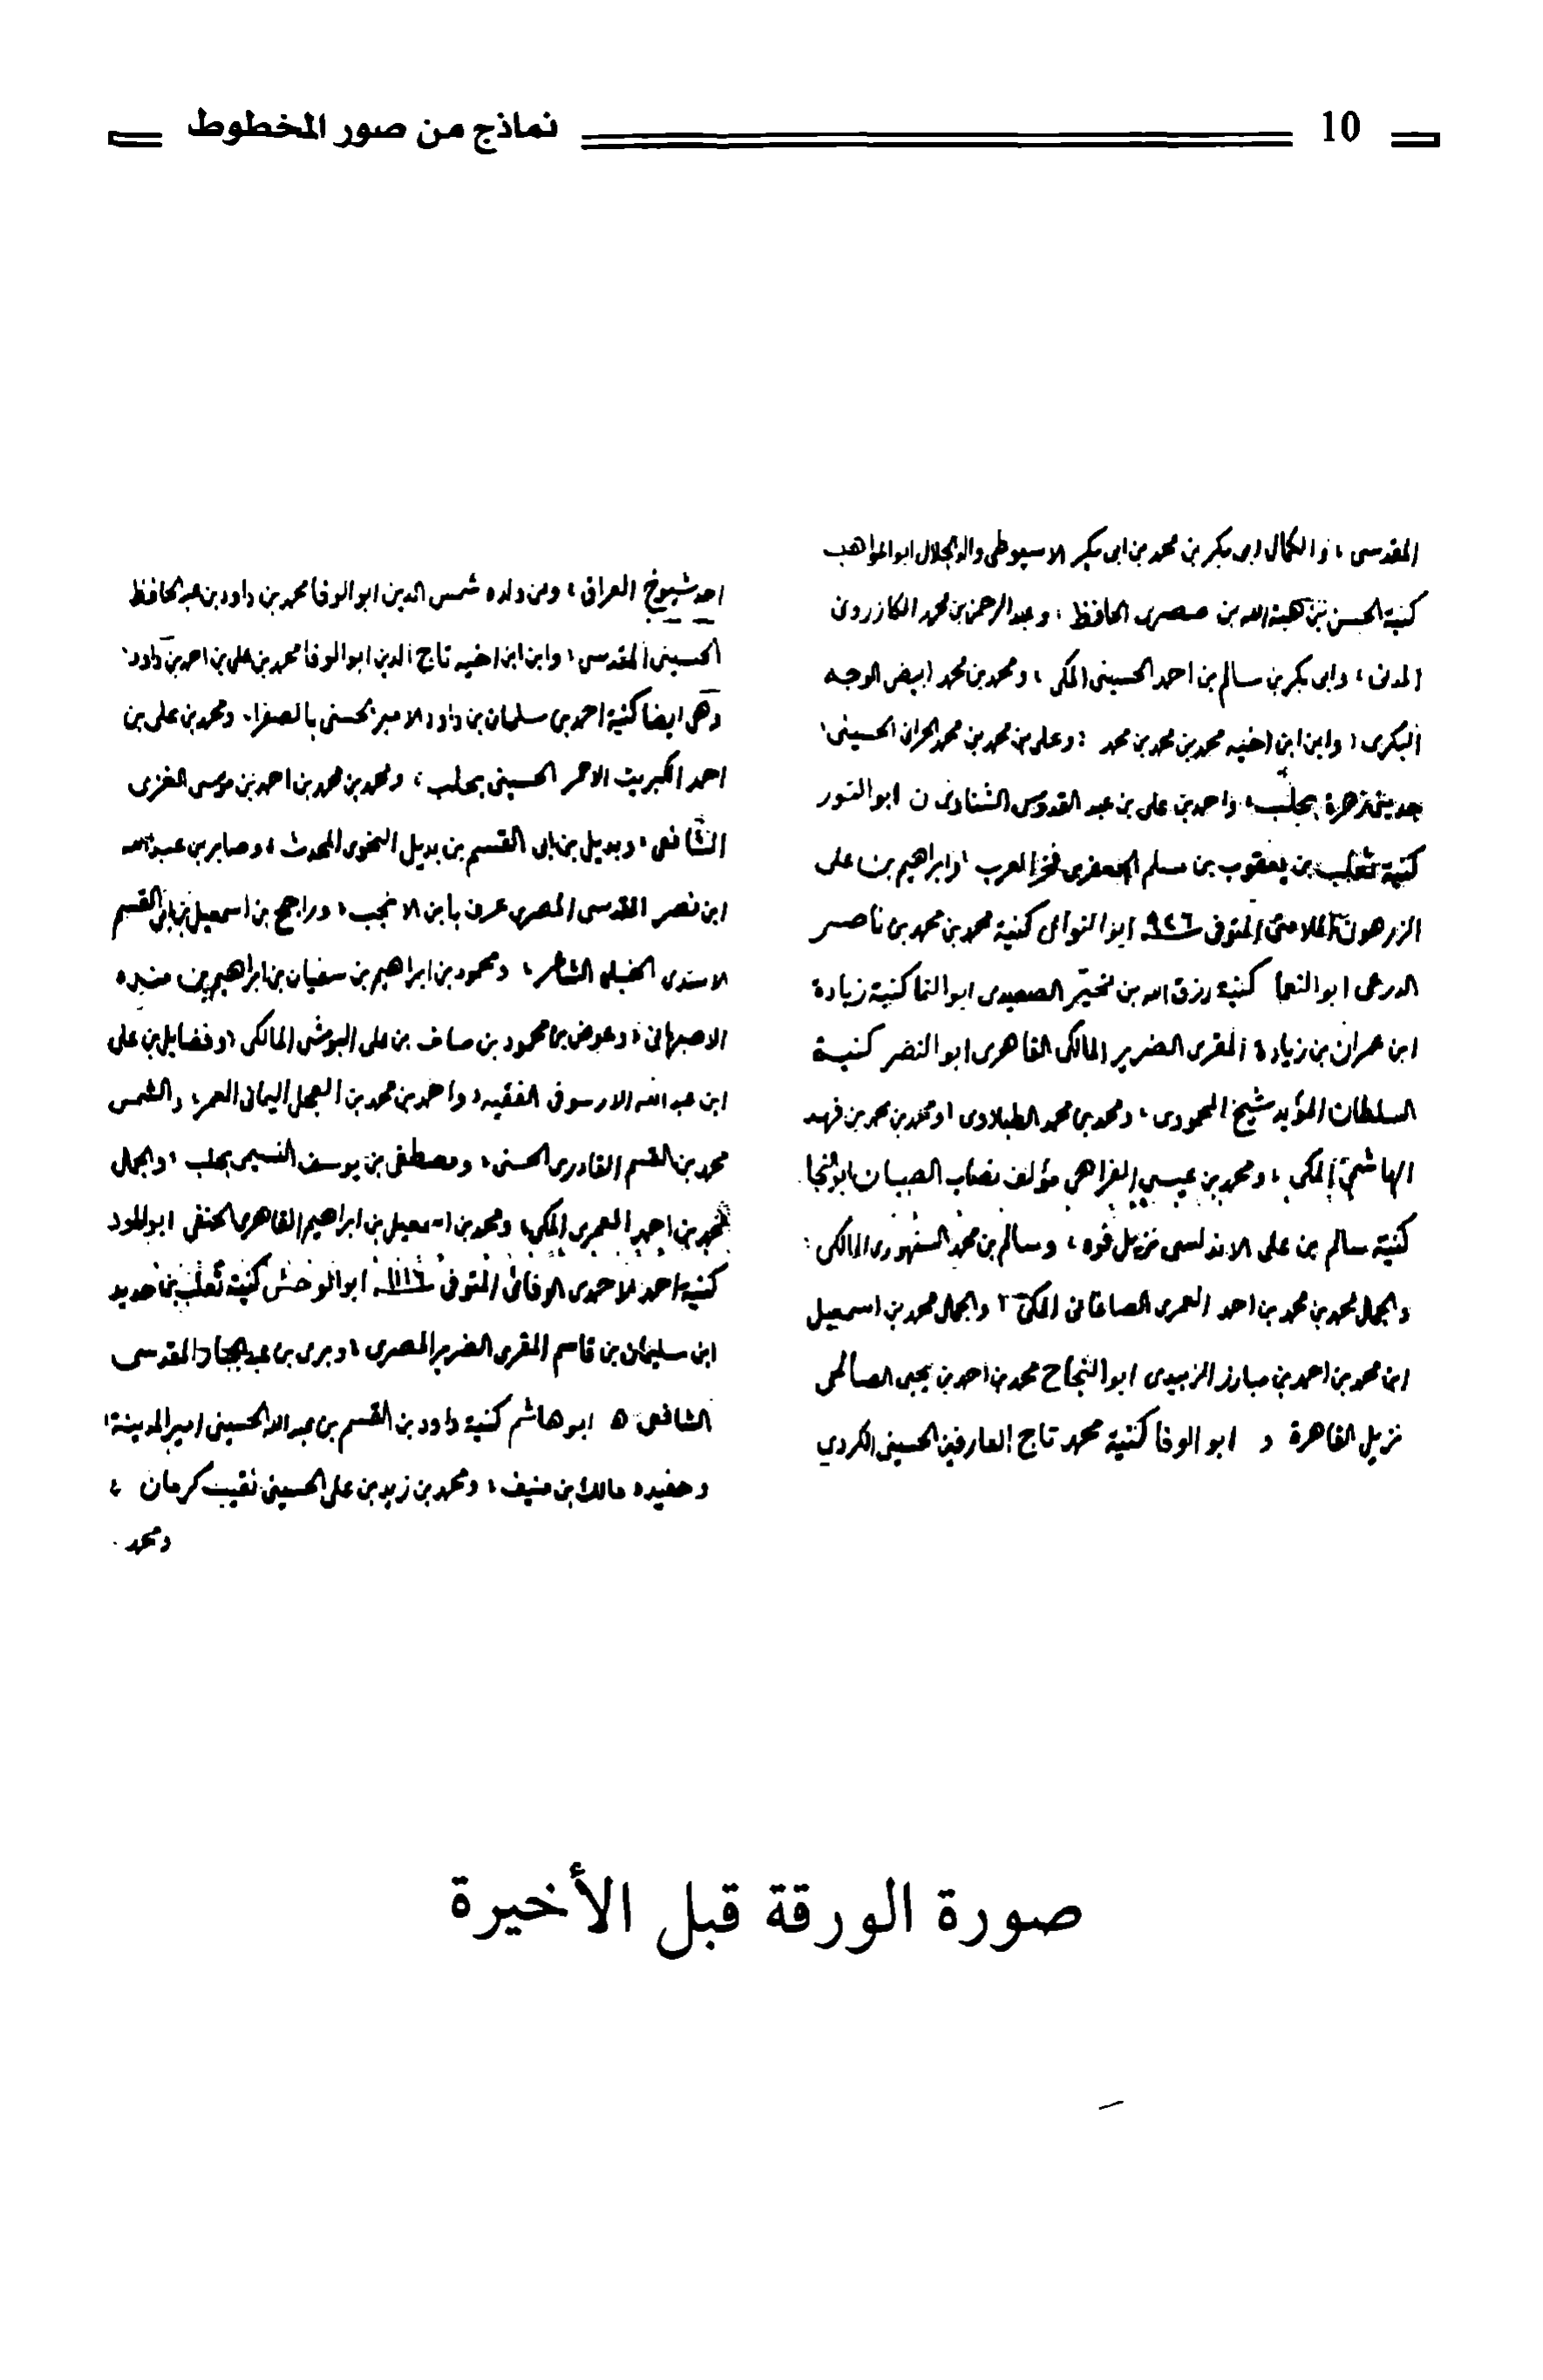 10 نماذج من صور المخطوط
المقدسى، والكمال ابى بكر بن محمد بن ابى بكر الاسيوطى والجلال ابو المواهب
كنية الحسن بن هبة الله بن صصرى الحافظ، وعبد الرحمن بن محمد الكازرونى
المدنى، وابى بكر بن سالم بن احمد الحسينى المكى، ومحمد بن محمد ابيض الوجه
البكرى، وابن ابن اخيه محمد بن محمد بن محمد، وعلى بن محمد بن محمد الحرانى الحسينى
جد بنى زهرة بحلب، واحمد بن على بن عبد القدوس الشناوى ن ابو النور
كنية ثعلب بن يعقوب بن مسلم الجعفرى فخر العرب، وابراهيم بن على
الزرهونى الملامتى المتوفى ٩٢٦ ابو النوال كنية محمد بن محمد بن ناصر
الدرعى ابو النعا كنية رزق الله بن الصعيدى ابو النما كنية زيادة
ابن عمران بن زيادة المقرى الضرير المالكى القاهرى ابو النضر كنية
السلطان المؤيد شيخ المحمودى، ومحمد بن محمد الطبلاوى، ومحمد بن محمد بن فهد
الهاشمى المكى، ومحمد بن عيسى الفراهى مؤلف نصاب الصبيان ابو النجا
كنية سالم بن على الاندلسى نزيل فوه، وسالم بن محمد السنهورى المالكى،
والجمال محمد بن محمد بن احمد العمرى الصاغانى المكى والجمال محمد بن اسمعيل
ابن محمد بن احمد بن مبارز الزبيدى ابو النجاح محمد بن احمد بن يحيى الصالحى
نزيل القاهرة و ابو الوفا كنية محمد تاج العارفين الحسينى الكردي
احد شيوخ العراق، ومن ولده شمس الدين ابو الوفا محمد بن داود بن عبد الحافظ
الحسينى المقدسى، وابن ابن اخيه تاج الدين ابو الوفا محمد بن على بن احمد بن داود،
وهى ايضا كنية احمد بن سلمان بن داود الامير الحسنى بالصفرا. ومحمد بن على بن
احمد الكبريت الاحمر الحسينى بحلب، ومحمد بن محمد بن احمد بن موسى الغزى
الشافعى، وبديل بن ابى القسم بن بديل النحوى المحدث، وصابر بن عبد الله
ابن نصر المقدسى المصرى عرف بابن الانجب، وراجح بن اسمعيل بن ابى القسم
الاسدى الحلى الشاعر، ومحمود بن ابراهيم بن سفيان بن ابراهيم بن منده
الاصبهانى، وعوض بن محمود بن صاف بن على البوشى المالكى، وفضايل بن على
ابن عبد الله الارسوفى الفقيه، واحمد بن محمد بن العجل اليمانى المعمر، والشمس
محمد بن القسم القادرى الحسنى، ومصطفى بن يوسف النسيمى بحلب، والجمال
محمد بن احمد العمرى المكى، ومحمد بن اسمعيل بن ابراهيم القاهرى الحنفى ابو الورد
كنية احمد الاحمدى الوفائى المتوفى ١١١٦ ابو الوحش كنية ثعلب بن حديد
ابن سليمان بن قاسم المقرى الضرير المصرى، وبرى بن عبد الجبار المقدسى
الشافعى ه ابو هاشم كنية داود بن القسم بن عبيد الله الحسينى امير المدينة،
وحفيده مالك بن منيف، ومحمد بن زيد بن على الحسينى نقيب كرمان،
ومحمد
صورة الورقة قبل الأخيرة